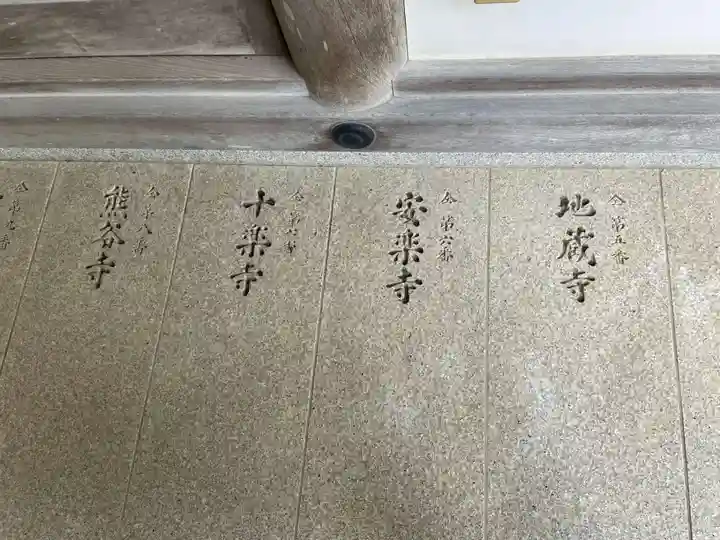 仝 第五番
地蔵寺
仝 第六番
安楽寺
仝 第七番
十楽寺
仝 第八番
熊谷寺
仝 第九番